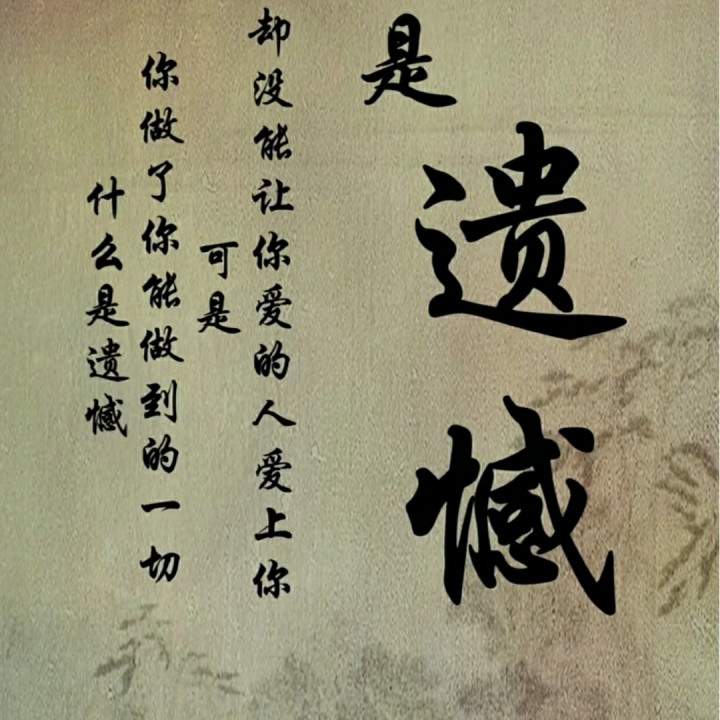 什么是遗憾
你做了你能做到的一切
可是
却没能让你爱的人爱上你
是遗憾